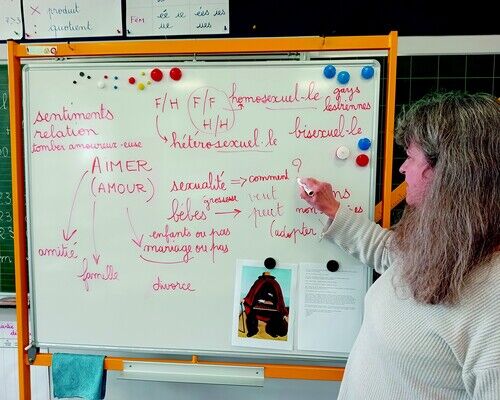 × produit
quotient
Fém
ée ie ées ies
ue ues
F/H
F/F
H/H
homosexuel·le
gays
lesbiennes
hétérosexuel·le
bisexuel·le
sentiments
relation
tomber amoureux·euse
AIMER
(AMOUR)
amitié
famille
sexualité => comment ?
bébés grossesse → veut
peut
non
(adopter
enfants ou pas
mariage ou pas
divorce